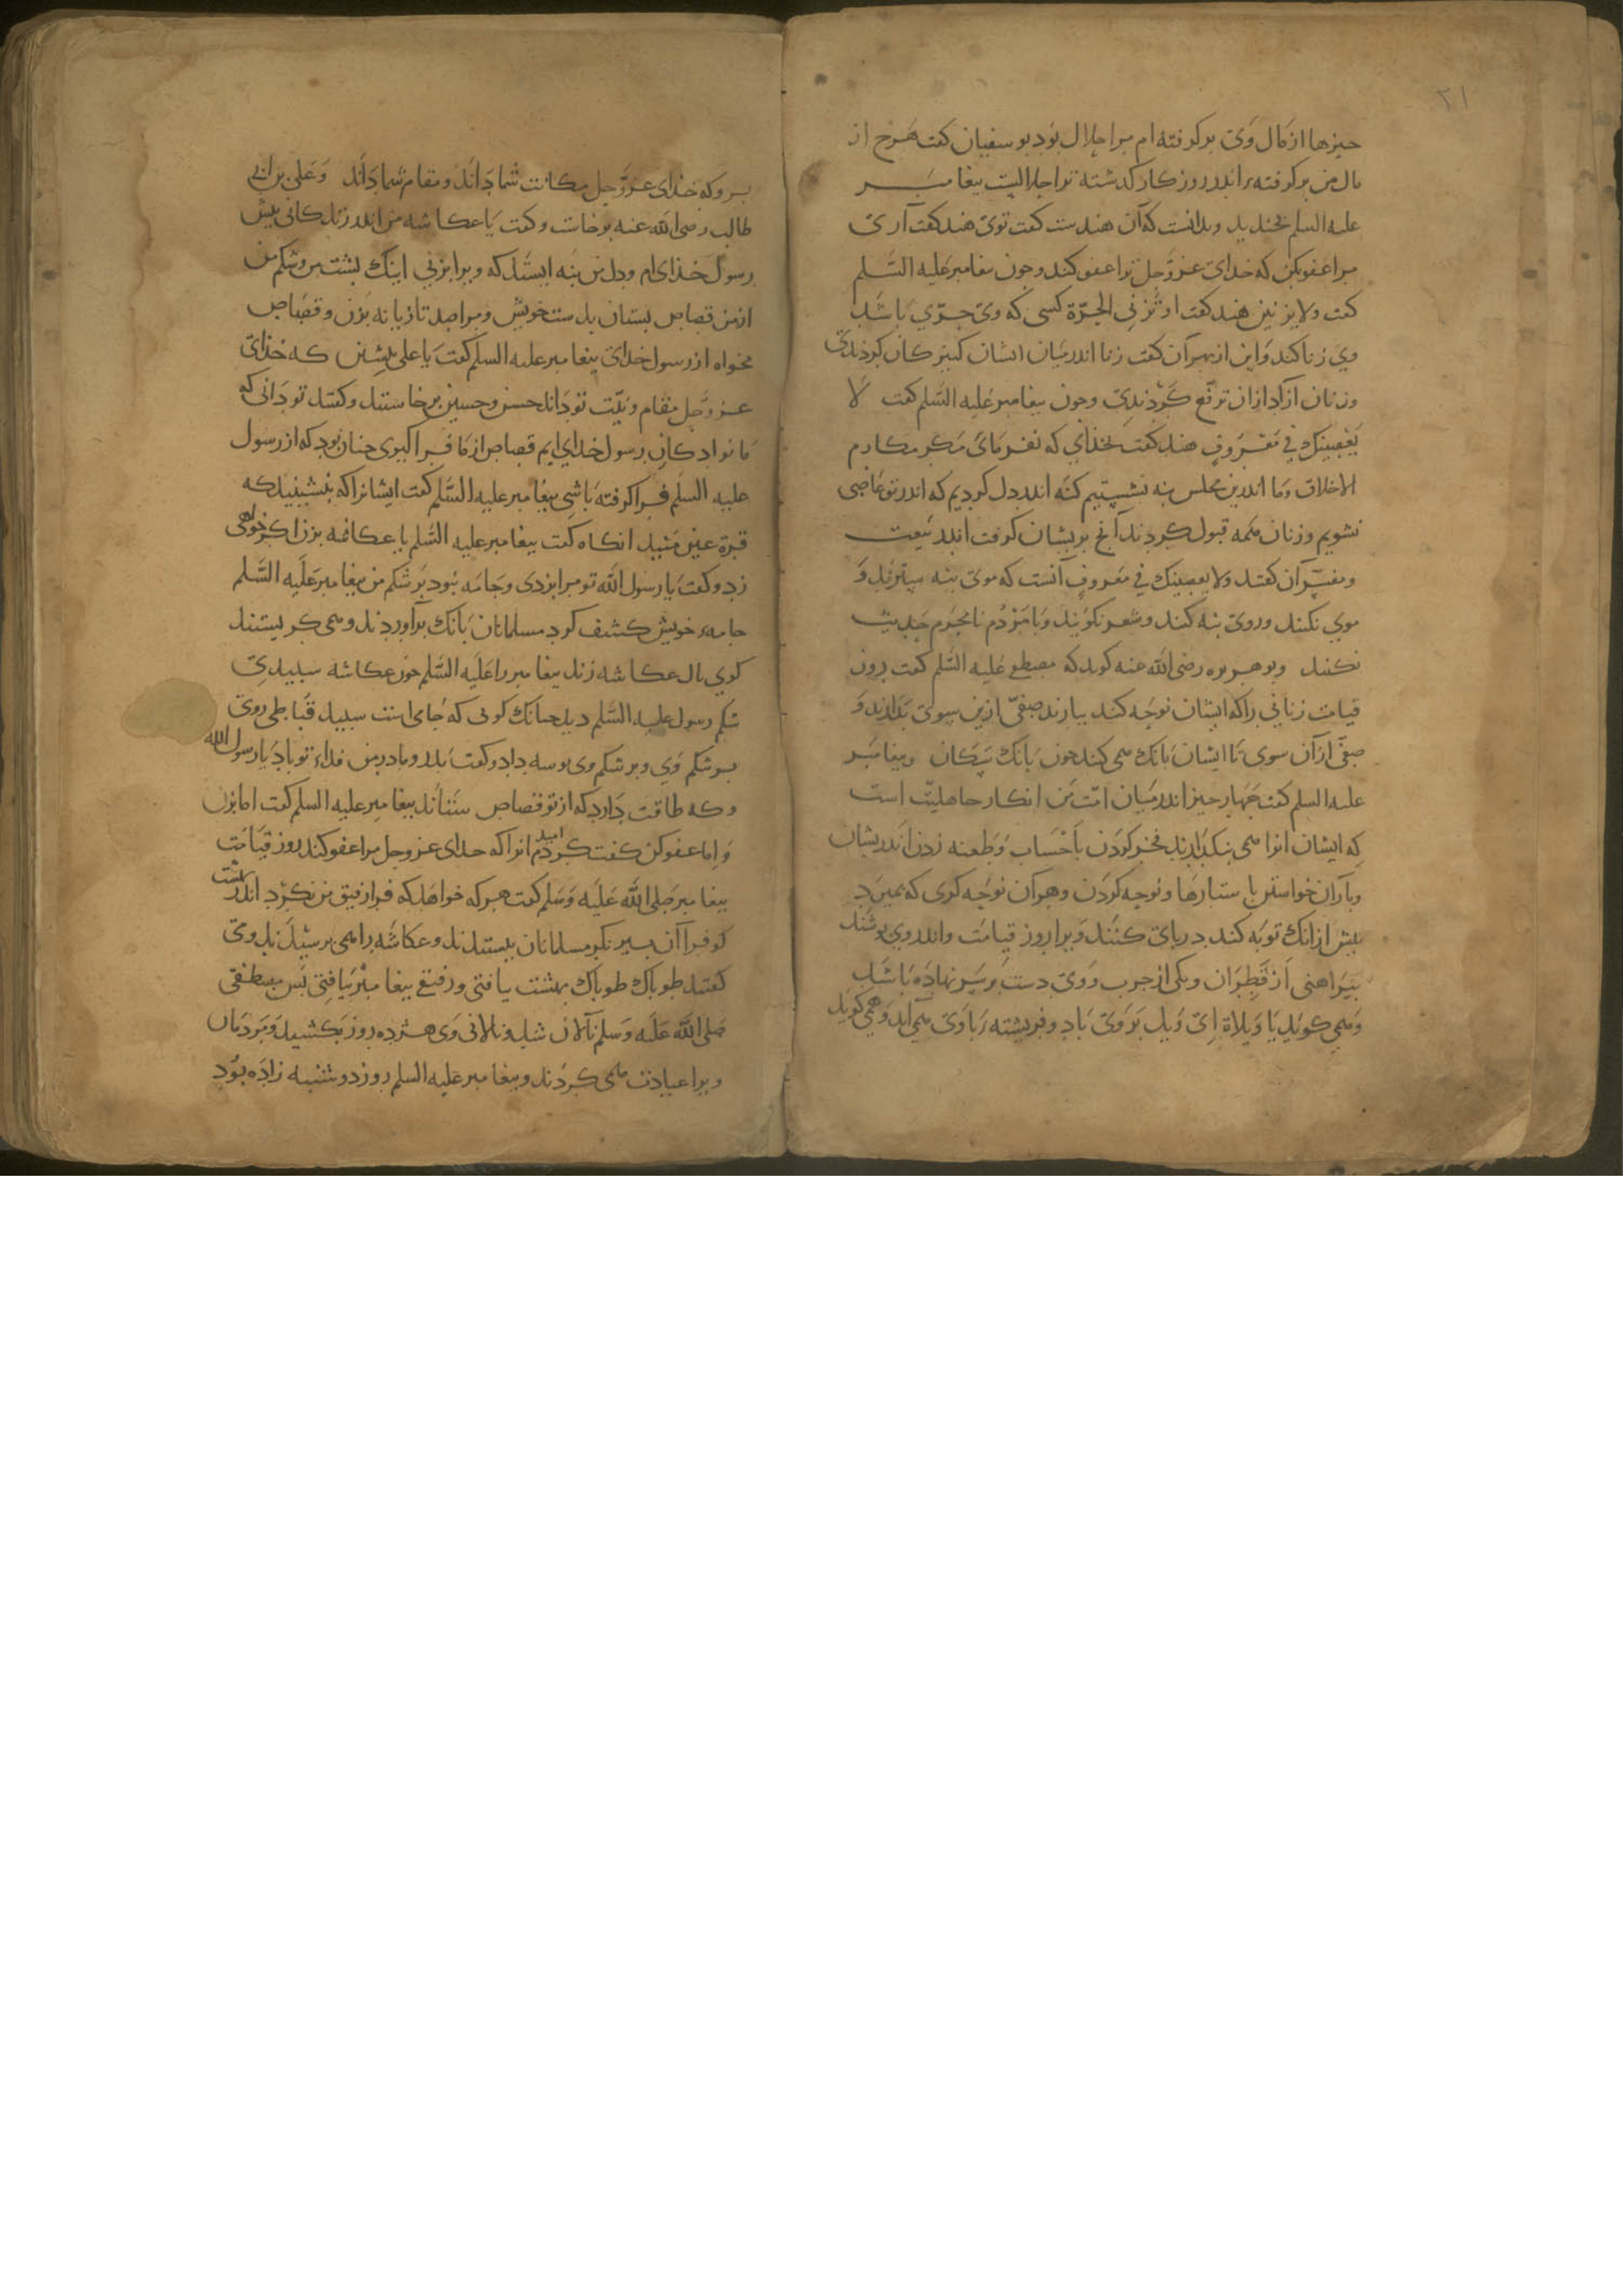 ٢١
حیزها از مال وی برکرفته ام مرا حلال بود بو سفیان کفت هرخ از
مال من برکرفتهء اندر روزکار کذشته ترا حلالیست بیغامبر
علیه السلم بخندید وبدانست که آن هندست کفت توی هند کفت آری
مرا عفو بکن که خدای عزوجل ترا عفو کند وجون بیغامبر علیه السّلم
کفت ولا یزنین هند کفت اوتزنی الحرّة کسی که وی حرّی باشد
وی زنا کند واین از بهر آن کفت زنا اندر میان ایشان کنیزکان کردندی
وزنان ازاد ازان ترفّع کردندی وجون بیغامبر علیه السّلم کفت لا
یعصینک فی معروف هند کفت بخذای که نفرمای مکر مکارم
الاخلاق وما اندرین مجلس بنه نشستیم کنه اندر دل کردیم که اندر تو عاصی
نشویم وزنان همه قبول کردند آنج بریشان کرفت اندر بیعت
ومفسّران کفتند ولا یعصینک فی معروف آنست که موی بنه سترند و
موی نکنند وروی بنه کنند وشعر نکویند وبا مردم نامحرم حدیث
نکنند وبوهریره رضی الله عنه کوید که مصطفی علیه السّلم کفت روز
قیامت زنانی را که ایشان نوحه کنند بیارند صفّی ازین سوی بدارند و
صفّی ازآن سوی تا ایشان بانک می کنند جون بانک سکان وبیغامبر
علیه السلم کفت جهار حیز اندر میان امّت من از کار جاهلیّت است
که ایشان انرا می بنکذارند فخر کردن باحساب وطعنه زدن اندر یشان
وباران خواستن با ستارها ونوحه کردن وهرآن نوحه کری که بمیرد
بیش ازانک توبه کند بر بای کنند ویرا روز قیامت واندر وی بوشند
بیراهنی از قطران ویکی از جرب ووی دست بر سر نهاده باشد
ومی کوید یا ویلاه ای ویل بر وی باد وفریشته با وی می آید وهمی کوید
بروکه خذای عزّوجل مکانت شما داند ومقام شما داند وعلی بن ابی
طالب رضی الله عنه برخاست وکفت یا عکاشه من اندر زندکانی بیش
رسول خذای ام ودل من بنه ایستد که ویرا بزنی اینک بشت من وشکم من
ازمن قصاص بستان بدست خویش ومرا صد تازیانه بزن وقصاص
مخواه از رسول خدای بیغامبر علیه السلم کفت یا علی بنشین که خذای
عزوجل مقام ونیّت تو داند حسن وحسین برخاستند وکفتند تو دانی که
ما نوادکان رسول خدای ایم قصاص از ما فرا کیری جنان بود که از رسول
علیه السلم فرا کرفته باشی بیغامبر علیه السّلم کفت ایشانرا که بنشینید که
قرة عین منید انکاه کفت بیغامبر علیه السّلم یا عکاشه بزن اکر خواهی
زد وکفت یا رسول الله تو مرا بزدی وجامه نبود بر شکم من بیغامبر علیه السّلم
جامهء خویش کشف کرد مسلمانان بانک برآوردند ومی کریستند
کوی مال عکاشه زند بیغامبر را علیه السّلم جون عکاشه سبیدی
شکم رسول علیه السّلم دید جنانک کوی که جای است سبید قباطی روی
بر شکم وی وبر شکم وی بوسه داد وکفت بدر ومادر من فداء تو باد یا رسول الله
وکه طاقت دارد که از تو قصاص ستاند بیغامبر علیه السلم کفت اما بزن
واما عفو کن کفت کردم امید انرا که خدای عزوجل مرا عفو کند روز قیامت
بیغامبر صلی الله علیه وسلم کفت هر که خواهد که فرا رفیق من نکرد اندر بهشت
کو فرا آن بیر نکر مسلمانان بیستدند وعکاشه را همی برسیدند ومی
کفتند طوباک طوباک بهشت یافتی ورفیقی بیغامبر یافتی بس مصطفی
صلی الله علیه وسلم نالان شد ونالانی وی هشزده روز بکشید ومردمان
ویرا عیادت می کردند وبیغامبر علیه السلم روز دوشنبه زاده بود